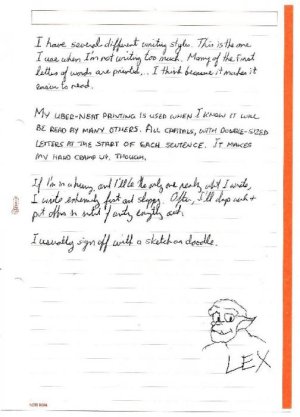 I have several different writing styles. This is the one
I use when I'm not writing too much. Many of the first
letters of words are printed... I think because it makes it
easier to read.
MY UBER-NEAT PRINTING IS USED WHEN I KNOW IT WILL
BE READ BY MANY OTHERS. ALL CAPITALS, WITH DOUBLE-SIZED
LETTERS AT THE START OF EACH SENTENCE. IT MAKES
MY HAND CRAMP UP, THOUGH.
If I'm in a hurry, and I'll be the only one reading what I write,
I write extremely fast and sloppy. Often, I'll drop
put in of
I usually sign off with a sketch or doodle.
LEX